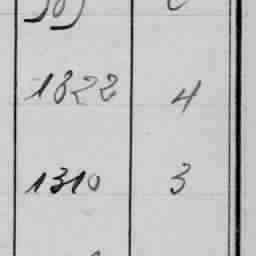 1822 4
1310 3